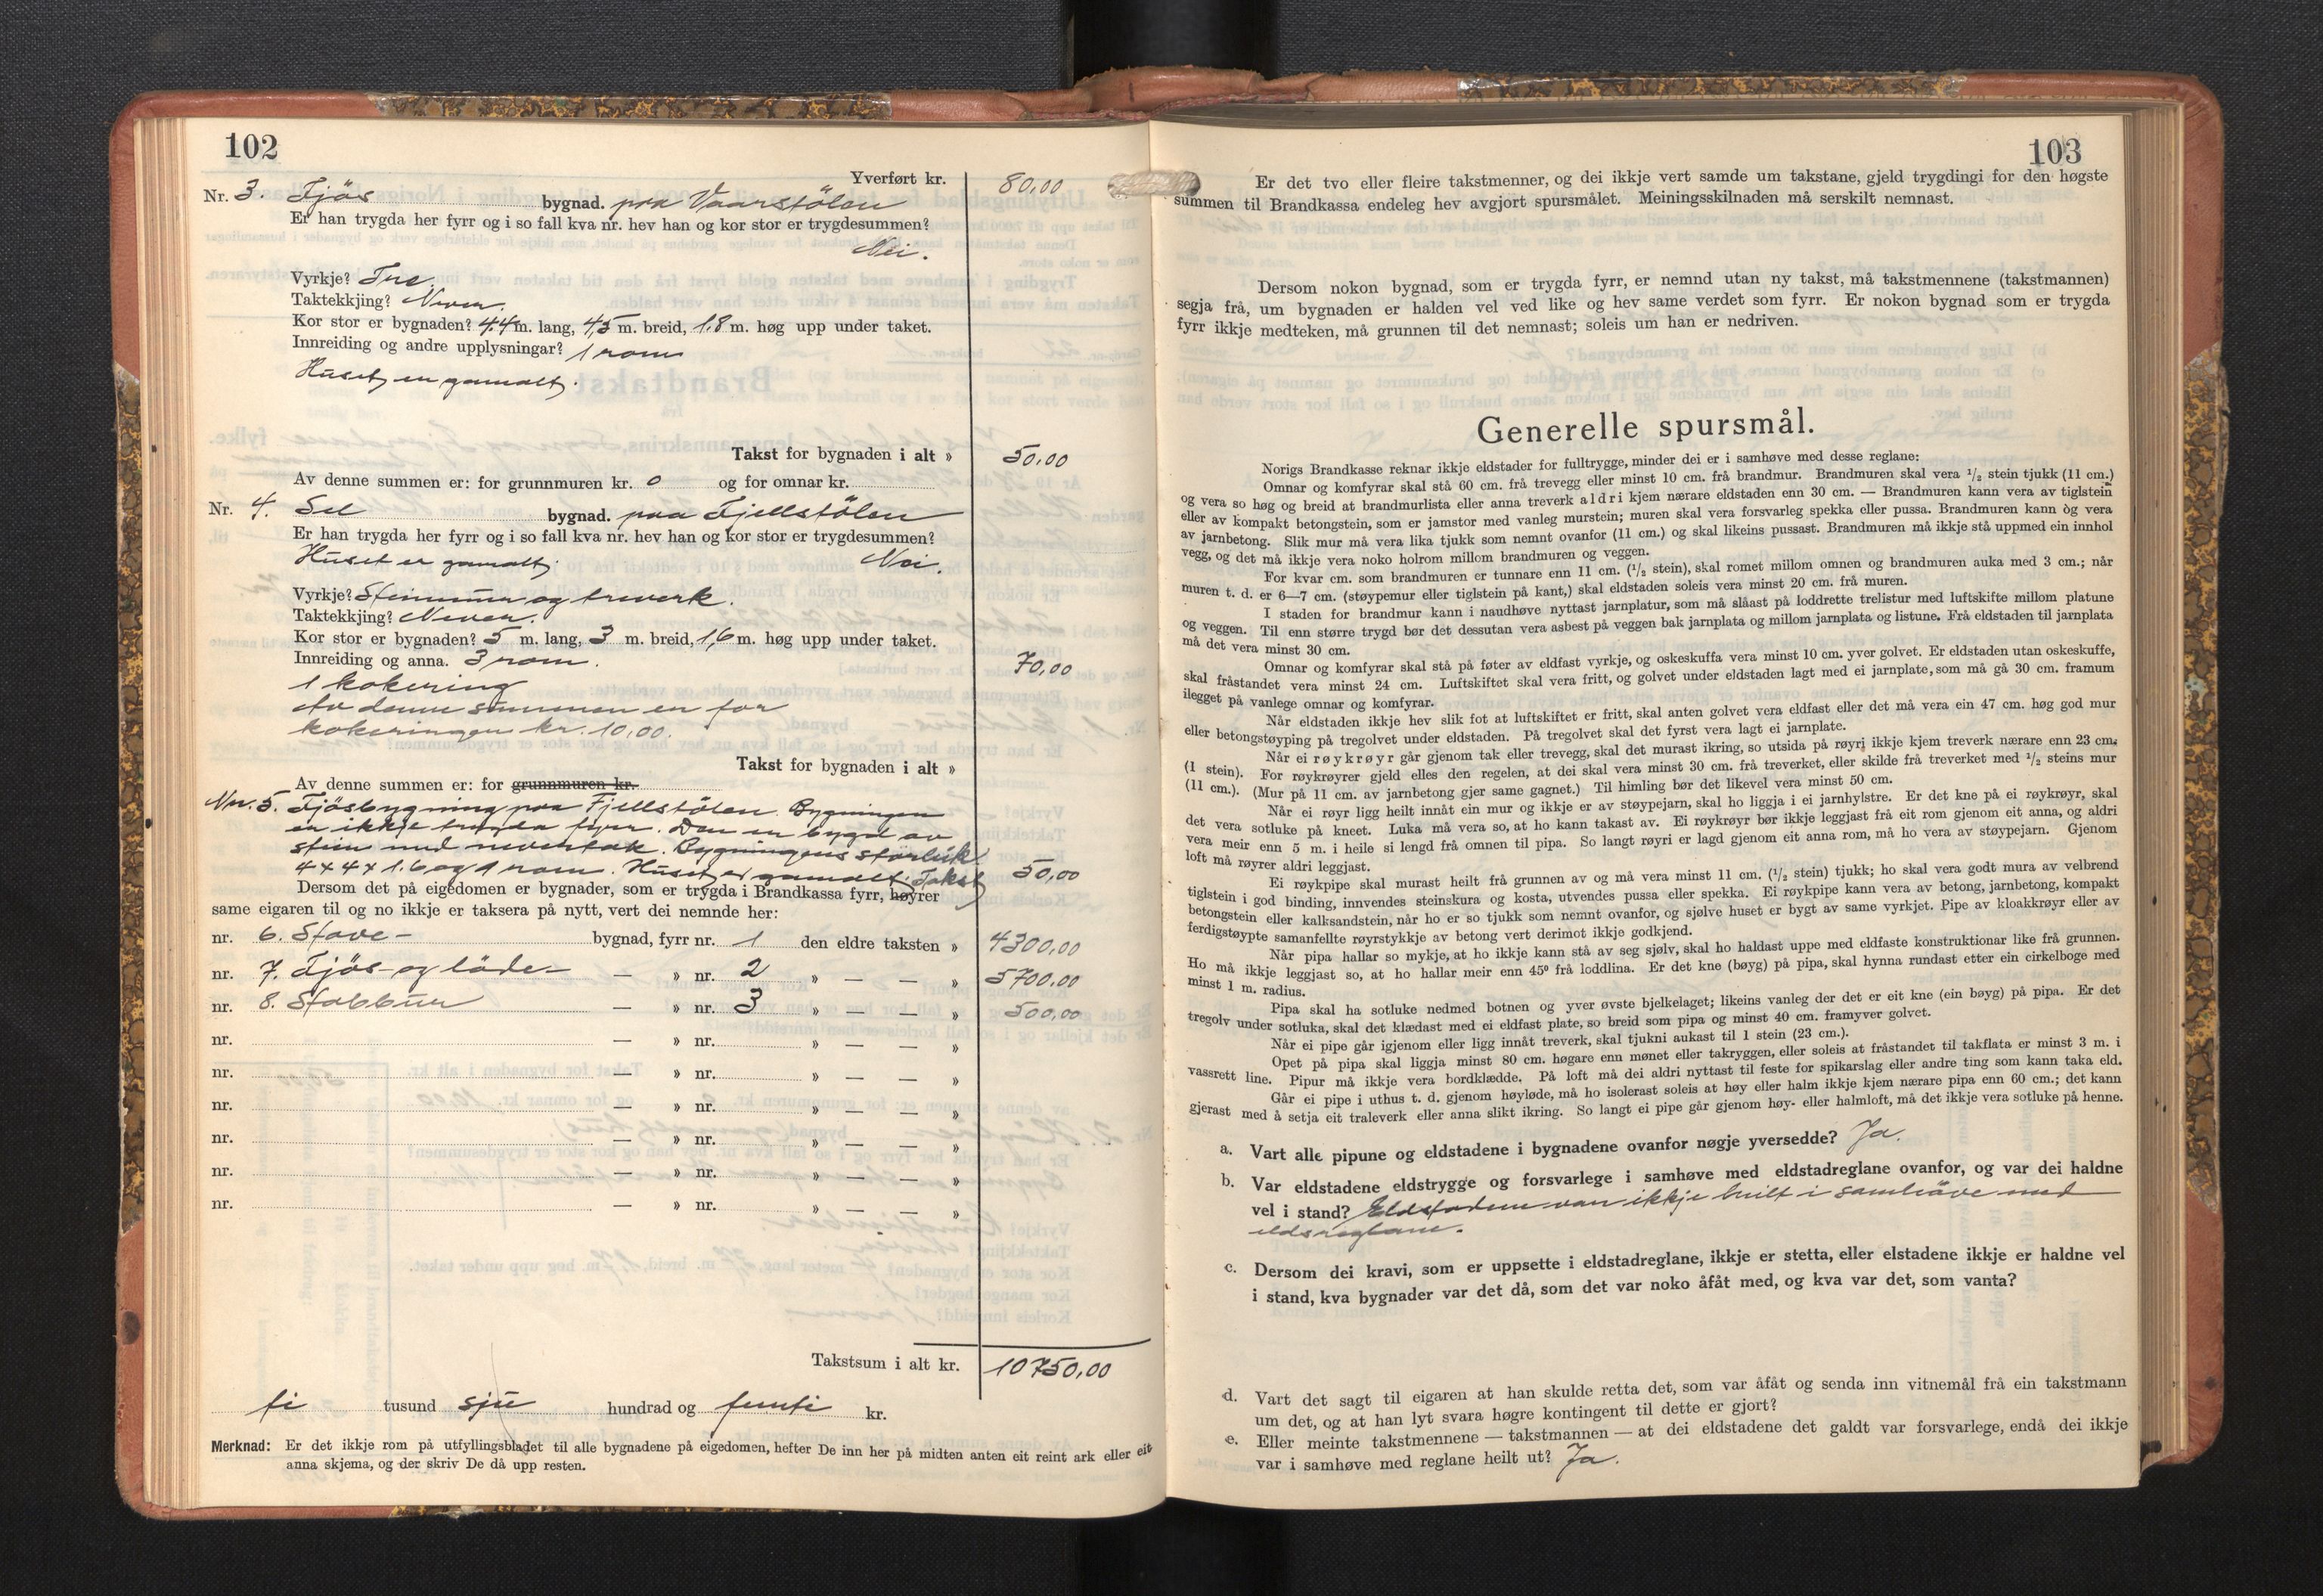 102
Yverført kr. 80,00
Nr. 3. Fjøs bygnad. paa Vaarstölen
Er han trygda her fyrr og i so fall kva nr. hev han og kor stor er trygdesummen?
Nei.
Vyrkje? Tre.
Taktekkjing? Never.
Kor stor er bygnaden? 4.4 m. lang, 4,5 m. breid, 1.8 m. høg upp under taket.
Innreiding og andre upplysningar? 1 rom
Huset er gamalt.
Takst for bygnaden i alt » 50,00
Av denne summen er: for grunnmuren kr. 0 og for omnar kr.
Nr. 4. Sel bygnad. paa Fjellstölen
Er han trygda her fyrr og i so fall kva nr. hev han og kor stor er trygdesummen?
Huset er gamalt. Nei.
Vyrkje? Steinmur og treverk.
Taktekkjing? Never.
Kor stor er bygnaden? 5 m. lang, 3 m. breid, 1,6 m. høg upp under taket.
Innreiding og anna. 3 rom. 70,00
1 kokering
Av denne summen er for
kokeringen kr. 10,00.
Takst for bygnaden i alt »
Av denne summen er: for grunnmuren kr.
Nr. 5. Fjösbygning paa Fjellstölen. Bygningen
er ikkje trygda fyrr. Den er bygd av
stein med nevertak. Bygningens storleik
4 x 4 x 1.6 og 1 rom. Huset er gamalt. Takst 50,00
Dersom det på eigedomen er bygnader, som er trygda i Brandkassa fyrr, høyrer
same eigaren til og no ikkje er taksera på nytt, vert dei nemnde her:
nr. 6. Stove- bygnad, fyrr nr. 1 den eldre taksten » 4300,00
nr. 7. Fjös- og löde- — » nr. 2 » — — » 5700,00
nr. 8. Stabbur — » nr. 3 » — — » 500,00
nr. — » nr. » — — »
nr. — » nr. » — — »
nr. — » nr. » — — »
nr. — » nr. » — — »
nr. — » nr. » — — »
nr. — » nr. » — — »
Takstsum i alt kr. 10750,00
ti tusund sju hundrad og femti kr.
Merknad: Er det ikkje rom på utfyllingsbladet til alle bygnadene på eigedomen, hefter De inn her på midten anten eit reint ark eller eit
anna skjema, og der skriv De då upp resten.
103
Er det tvo eller fleire takstmenner, og dei ikkje vert samde um takstane, gjeld trygdingi for den høgste
summen til Brandkassa endeleg hev avgjort spursmålet. Meiningsskilnaden må serskilt nemnast.
Dersom nokon bygnad, som er trygda fyrr, er nemnd utan ny takst, må takstmennene (takstmannen)
segja frå, um bygnaden er halden vel ved like og hev same verdet som fyrr. Er nokon bygnad som er trygda
fyrr ikkje medteken, må grunnen til det nemnast; soleis um han er nedriven.
Generelle spursmål.
Norigs Brandkasse reknar ikkje eldstader for fulltrygge, minder dei er i samhøve med desse reglane:
Omnar og komfyrar skal stå 60 cm. frå trevegg eller minst 10 cm. frå brandmur. Brandmuren skal vera 1/2 stein tjukk (11 cm.)
og vera so høg og breid at brandmurlista eller anna treverk aldri kjem nærare eldstaden enn 30 cm. — Brandmuren kann vera av tiglstein
eller av kompakt betongstein, som er jamstor med vanleg murstein; muren skal vera forsvarleg spekka eller pussa. Brandmuren kann òg vera
av jarnbetong. Slik mur må vera lika tjukk som nemnt ovanfor (11 cm.) og skal likeins pussast. Brandmuren må ikkje stå uppmed ein innhol
vegg, og det må ikkje vera noko holrom millom brandmuren og veggen.
For kvar cm. som brandmuren er tunnare enn 11 cm. (1/2 stein), skal romet millom omnen og brandmuren auka med 3 cm.; når
muren t. d. er 6—7 cm. (støypemur eller tiglstein på kant,) skal eldstaden soleis vera minst 20 cm. frå muren.
I staden for brandmur kann i naudhøve nyttast jarnplatur, som må slåast på loddrette trelistur med luftskifte millom platune
og veggen. Til enn større trygd bør det dessutan vera asbest på veggen bak jarnplata og millom jarnplata og listune. Frå eldstaden til jarnplata
må det vera minst 30 cm.
Omnar og komfyrar skal stå på føter av eldfast vyrkje, og oskeskuffa vera minst 10 cm. yver golvet. Er eldstaden utan oskeskuffe,
skal fråstandet vera minst 24 cm. Luftskiftet skal vera fritt, og golvet under eldstaden lagt med ei jarnplate, som må gå 30 cm. framum
ilegget på vanlege omnar og komfyrar.
Når eldstaden ikkje hev slik fot at luftskiftet er fritt, skal anten golvet vera eldfast eller det må vera ein 47 cm. høg god mur
eller betongstøyping på tregolvet under eldstaden. På tregolvet skal det fyrst vera lagt ei jarnplate.
Når ei røykrøyr går gjenom tak eller trevegg, skal det murast ikring, so utsida på røyri ikkje kjem treverk nærare enn 23 cm.
(1 stein). For røykrøyrer gjeld elles den regelen, at dei skal vera minst 30 cm. frå treverket, eller skilde frå treverket med 1/2 steins mur
(11 cm.). (Mur på 11 cm. av jarnbetong gjer same gagnet.) Til himling bør det likevel vera minst 50 cm.
Når ei røyr ligg heilt innåt ein mur og ikkje er av støypejarn, skal ho liggja i ei jarnhylstre. Er det kne på ei røykrøyr, skal
det vera sotluke på kneet. Luka må vera so, at ho kann takast av. Ei røykrøyr bør ikkje leggjast frå eit rom gjenom eit anna, og aldri
vera meir enn 5 m. i heile si lengd frå omnen til pipa. So langt røyri er lagd gjenom eit anna rom, må ho vera av støypejarn. Gjenom
loft må røyrer aldri leggjast.
Ei røykpipe skal murast heilt frå grunnen av og må vera minst 11 cm. (1/2 stein) tjukk; ho skal vera godt mura av velbrend
tiglstein i god binding, innvendes steinskura og kosta, utvendes pussa eller spekka. Ei røykpipe kann vera av betong, jarnbetong, kompakt
betongstein eller kalksandstein, når ho er so tjukk som nemnt ovanfor, og sjølve huset er bygt av same vyrkjet. Pipe av kloakkrøyr eller av
ferdigstøypte samanfellte røyrstykkje av betong vert derimot ikkje godkjend.
Når pipa hallar so mykje, at ho ikkje kann stå av seg sjølv, skal ho haldast uppe med eldfaste konstruktionar like frå grunnen.
Ho må ikkje leggjast so, at ho hallar meir enn 45° frå loddlina. Er det kne (bøyg) på pipa, skal hynna rundast etter ein cirkelboge med
minst 1 m. radius.
Pipa skal ha sotluke nedmed botnen og yver øvste bjelkelaget; likeins vanleg der det er eit kne (ein bøyg) på pipa. Er det
tregolv under sotluka, skal det klædast med ei eldfast plate, so breid som pipa og minst 40 cm. framyver golvet.
Når ei pipe går igjenom eller ligg innåt treverk, skal tjukni aukast til 1 stein (23 cm.).
Opet på pipa skal liggja minst 80 cm. høgare enn mønet eller takryggen, eller soleis at fråstandet til takflata er minst 3 m. i
vassrett line. Pipur må ikkje vera bordklædde. På loft må dei aldri nyttast til feste for spikarslag eller andre ting som kann taka eld.
Går ei pipe i uthus t. d. gjenom høyløde, må ho isolerast soleis at høy eller halm ikkje kjem nærare pipa enn 60 cm.; det kann
gjerast med å setja eit traleverk eller anna slikt ikring. So langt ei pipe går gjenom høy- eller halmloft, må det ikkje vera sotluke på henne.
a. Vart alle pipune og eldstadene i bygnadene ovanfor nøgje yversedde? Ja.
b. Var eldstadene eldstrygge og forsvarlege i samhøve med eldstadreglane ovanfor, og var dei haldne
vel i stand? Eldstadene var ikkje heilt i samhöve med
eldsreglane.
c. Dersom dei kravi, som er uppsette i eldstadreglane, ikkje er stetta, eller elstadene ikkje er haldne vel
i stand, kva bygnader var det då, som det var noko åfåt med, og kva var det, som vanta?
d. Vart det sagt til eigaren at han skulde retta det, som var åfåt og senda inn vitnemål frå ein takstmann
um det, og at han lyt svara høgre kontingent til dette er gjort?
e. Eller meinte takstmennene — takstmannen — at dei eldstadene det galdt var forsvarlege, endå dei ikkje
var i samhøve med reglane heilt ut? Ja.